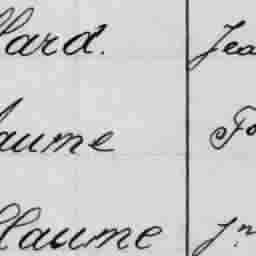 llard. Jea
aume Fo
llaume Jn